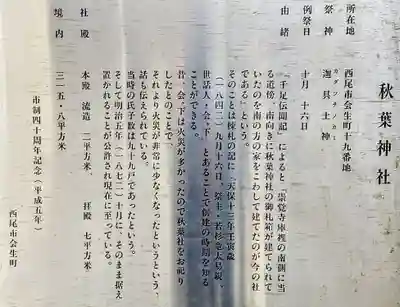 秋葉神社
所在地　西尾市会生町十九番地
祭神　迦具土神
カグツチノカミ
例祭日　十月十六日
由緒　「千足伝聞記」によると「崇覚寺庫裡の南側に当
る道傍、南向きに秋葉神社の御札箱が建てられて
いたのを南の方の家をこわして建てたのが今の社
である」という。
そのことは棟札の記に「天保十三年壬寅歳
（一八四二）九月十六日、祭主・若杉壱太易親、
世話人・会ノ下」とあることで創建の時期を知る
ことができる。
昔、会ノ下は火災が多かったので秋葉社をお祀り
したとのことで
それより火災が非常に少なくなったという、
話も伝えられている。
当時の氏子数は九十九戸であったという。
そして明治五年（一八七二）十月に、そのまま据え
置かれることが公許され現在に至っている。
社殿　本殿　流造　二平方米　拝殿　七平方米
境内　三一五・八平方米
市制四十周年記念（平成五年）
西尾市会生町